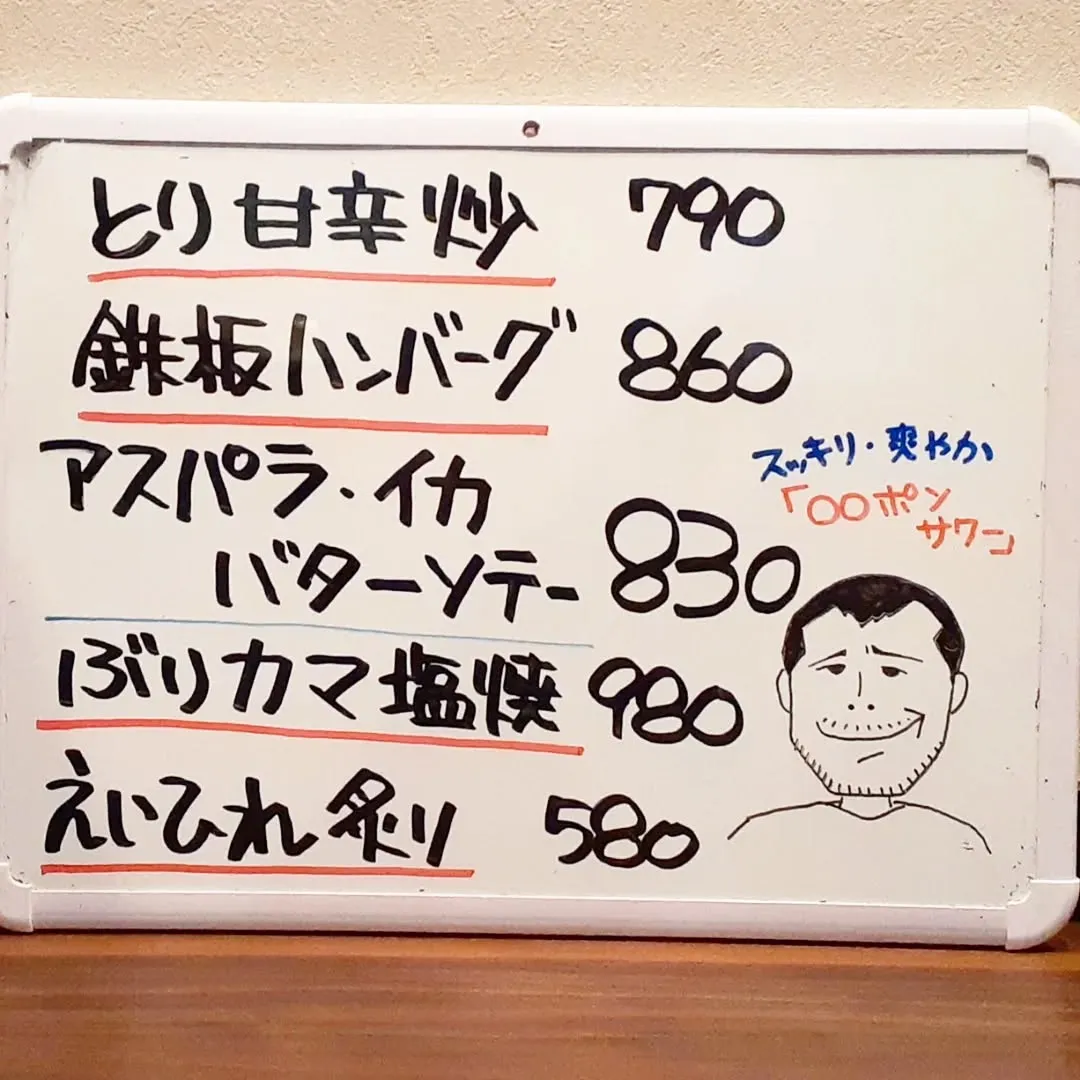 とり甘辛炒 790
鉄板ハンバーグ 860
アスパラ・イカ
バターソテー 830
ぶりカマ塩焼 980
えいひれ炙り 580
スッキリ・爽やか
「〇〇ポン
サワー」